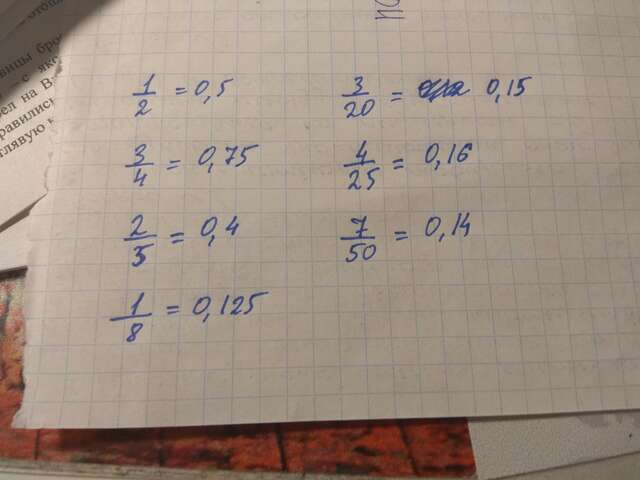 1/2 = 0,5
3/4 = 0,75
2/5 = 0,4
1/8 = 0,125
3/20 = 0,15
4/25 = 0,16
7/50 = 0,14